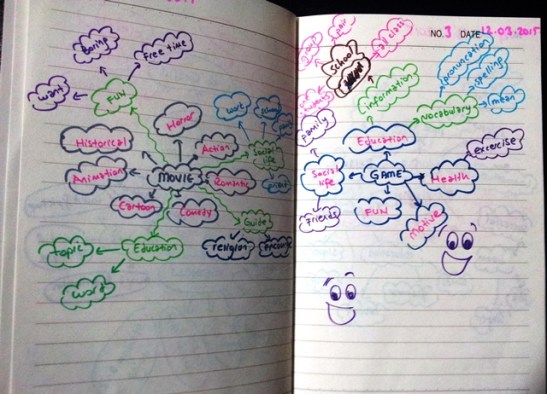 Boring
Free time
want
FUN
Horror
Historical
Action
Social
life
Animation
MOVIE
Romantic
Cartoon
Comedy
Guide
topic
Education
religion
word
NO. 3 DATE 12.03.2015
School
information
pronuncation
spelling
vocabulary
mean
family
Education
exercise
Social
life
GAME
Health
friends
FUN
motive